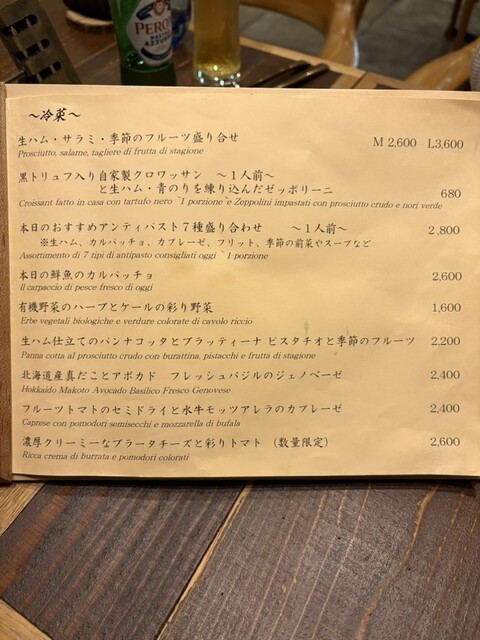 PERONI
NASTRO AZZURRO
～冷菜～
生ハム・サラミ・季節のフルーツ盛り合せ M 2,600 L3,600
Prosciutto, salame, tagliere di frutta di stagione
黒トリュフ入り自家製クロワッサン ～1人前～
と生ハム・青のりを練り込んだゼッポリーニ 680
Croissant fatto in casa con tartufo nero ~1 porzione~e Zeppolini impastati con prosciutto crudo e nori verde
本日のおすすめアンティパスト7種盛り合わせ ～1人前～ 2,800
※生ハム、カルパッチョ、カプレーゼ、フリット、季節の前菜やスープなど
Assortimento di 7 tipi di antipasto consigliati oggi ~1 porzione
本日の鮮魚のカルパッチョ 2,600
Il carpaccio di pesce fresco di oggi
有機野菜のハーブとケールの彩り野菜 1,600
Erbe vegetali biologiche e verdure colorate di cavolo riccio
生ハム仕立てのパンナコッタとブラッティーナ ピスタチオと季節のフルーツ 2,200
Panna cotta al prosciutto crudo con burattina, pistacchi e frutta di stagione
北海道産真だことアボカド フレッシュバジルのジェノベーゼ 2,400
Hokkaido Makoto Avocado Basilico Fresco Genovese
フルーツトマトのセミドライと水牛モッツアレラのカプレーゼ 2,400
Caprese con pomodori semisecchi e mozzarella di bufala
濃厚クリーミーなブラータチーズと彩りトマト （数量限定） 2,600
Ricca crema di burrata e pomodori colorati